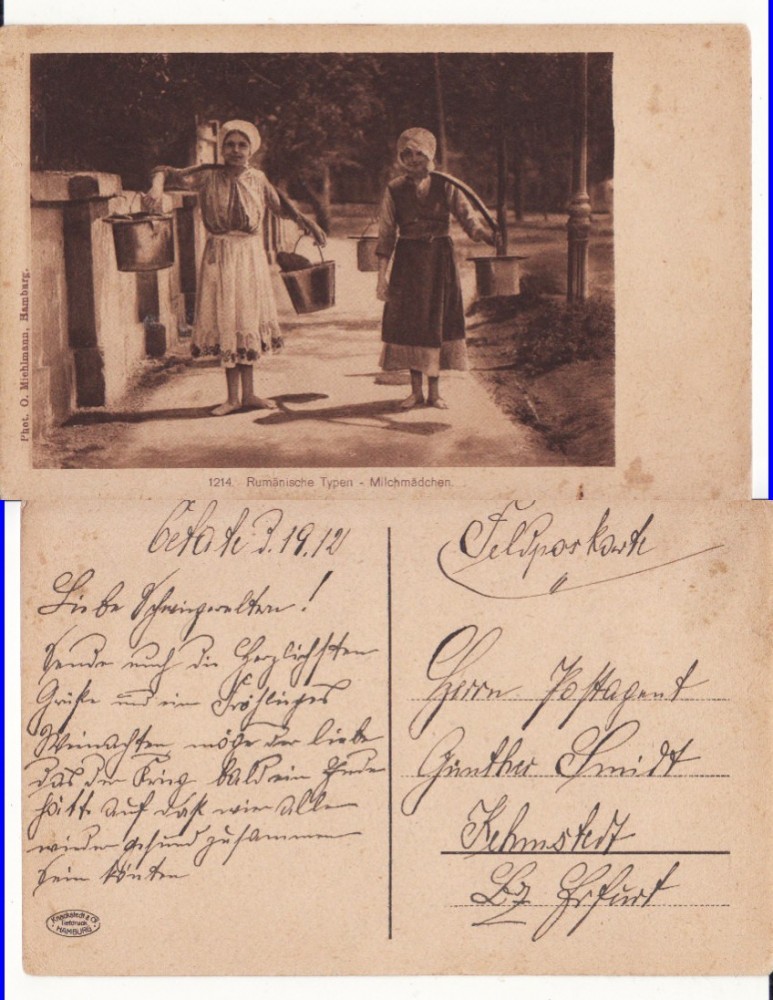 Phot. O. Miehlmann, Hamburg.
1214. Rumänische Typen - Milchmädchen.
Cetate d. 19.12
Liebe Schwiegereltern!
Sende euch die Herzlichsten
Grüße und ein Fröhliges
Weinachten möge der liebe
das der Krieg bald ein Ende
hätte auf daß wier alle
wieder gesund zusammen
sein könten
Feldposkarte
Herrn Postagent
Günther Smidt
Kehmstedt
Bz Erfurt
Knackstedt & Co
Tiefdruck
HAMBURG